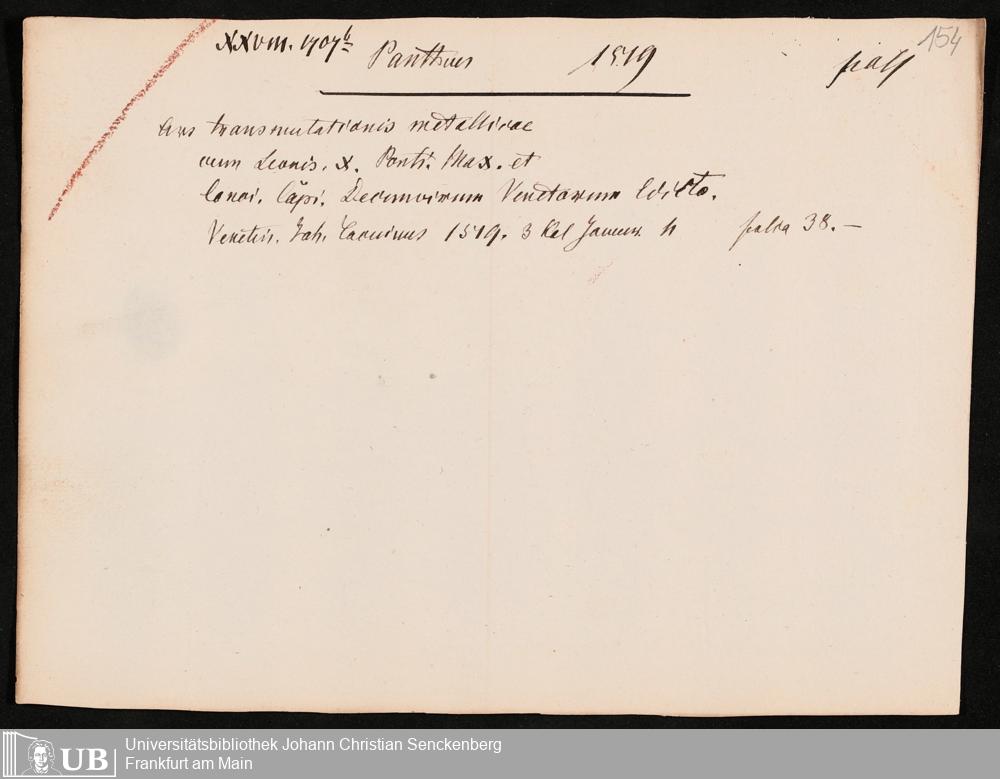 XXVIII. 1707b
Pantheus 1519 154
Ars transmutationis metallicae
cum Leonis. X. Ponti. Max. et
Conci. Cāpi. Decemvirum Venetorum Edicto.
Venetiis. Joh. Tacuinus 1519. 3 Kal Januar. 4 38.–
Universitätsbibliothek Johann Christian Senckenberg
UB Frankfurt am Main